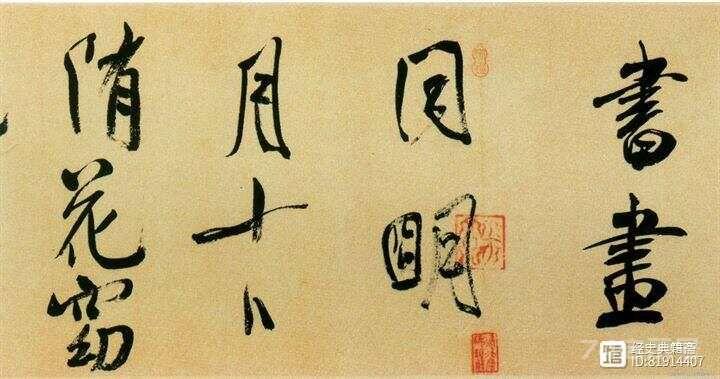 書畫
同明
月十日
隨花窈
经史典籍斋
ID:81914407